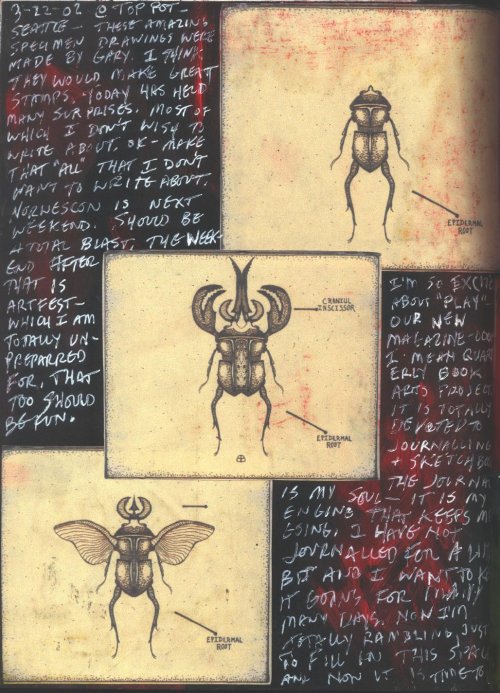 3-22-02 @ TOP POT-
SEATTLE - THESE AMAZING
SPECIMEN DRAWINGS WERE
MADE BY GARY. I THINK
THEY WOULD MAKE GREAT
STAMPS. TODAY HAS HELD
MANY SURPRISES. MOST OF
WHICH I DON'T WISH TO
WRITE ABOUT. OK - MAKE
THAT "ALL" THAT I DON'T
WANT TO WRITE ABOUT.
NORWESCON IS NEXT
WEEKEND. SHOULD BE
A TOTAL BLAST. THE WEEK-
END AFTER
THAT IS
ARTFEST-
WHICH I AM
TOTALLY UN-
PREPARRED
FOR. THAT
TOO SHOULD
BE FUN.
EPIDERMAL
ROOT
CRANIUL
INSCISSOR
EPIDERMAL
ROOT
EPIDERMAL
ROOT
I'M SO EXCITE
ABOUT "PLAY"
OUR NEW
MAGAZINE-
I MEAN QUAR
ERLY BOOK
ARTS PROJECT
IT IS TOTALLY
DEVOTED TO
JOURNALLING
+ SKETCHBO
THE JOURNAL
IS MY SOUL - IT IS MY
ENGINE THAT KEEPS M
GOING. I HAVE NOT
JOURNALLED FOR A
BIT AND I WANT TO K
IT GOING FOR
MANY DAYS. NOW I'M
TOTALLY RAMBLING JUST
TO FILL IN THIS SPACE
AND NOW IT IS TIME